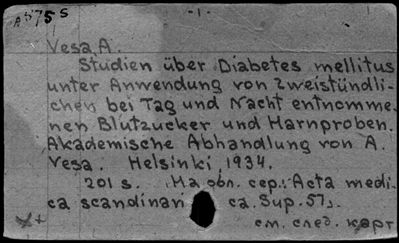 A575 S
- 1 -
Vesa, A.
Studien über Diabetes mellitus
unter Anwendung von Zweistündli-
chen bei Tag und Nacht entnomme-
nen Blutzucker und Harnproben.
Akademische Abhandlung von A.
Vesa. Helsinki, 1934.
201 s. На обл. сер.: Acta medi-
ca scandinavi ca. Sup. 57.
см. след. карт